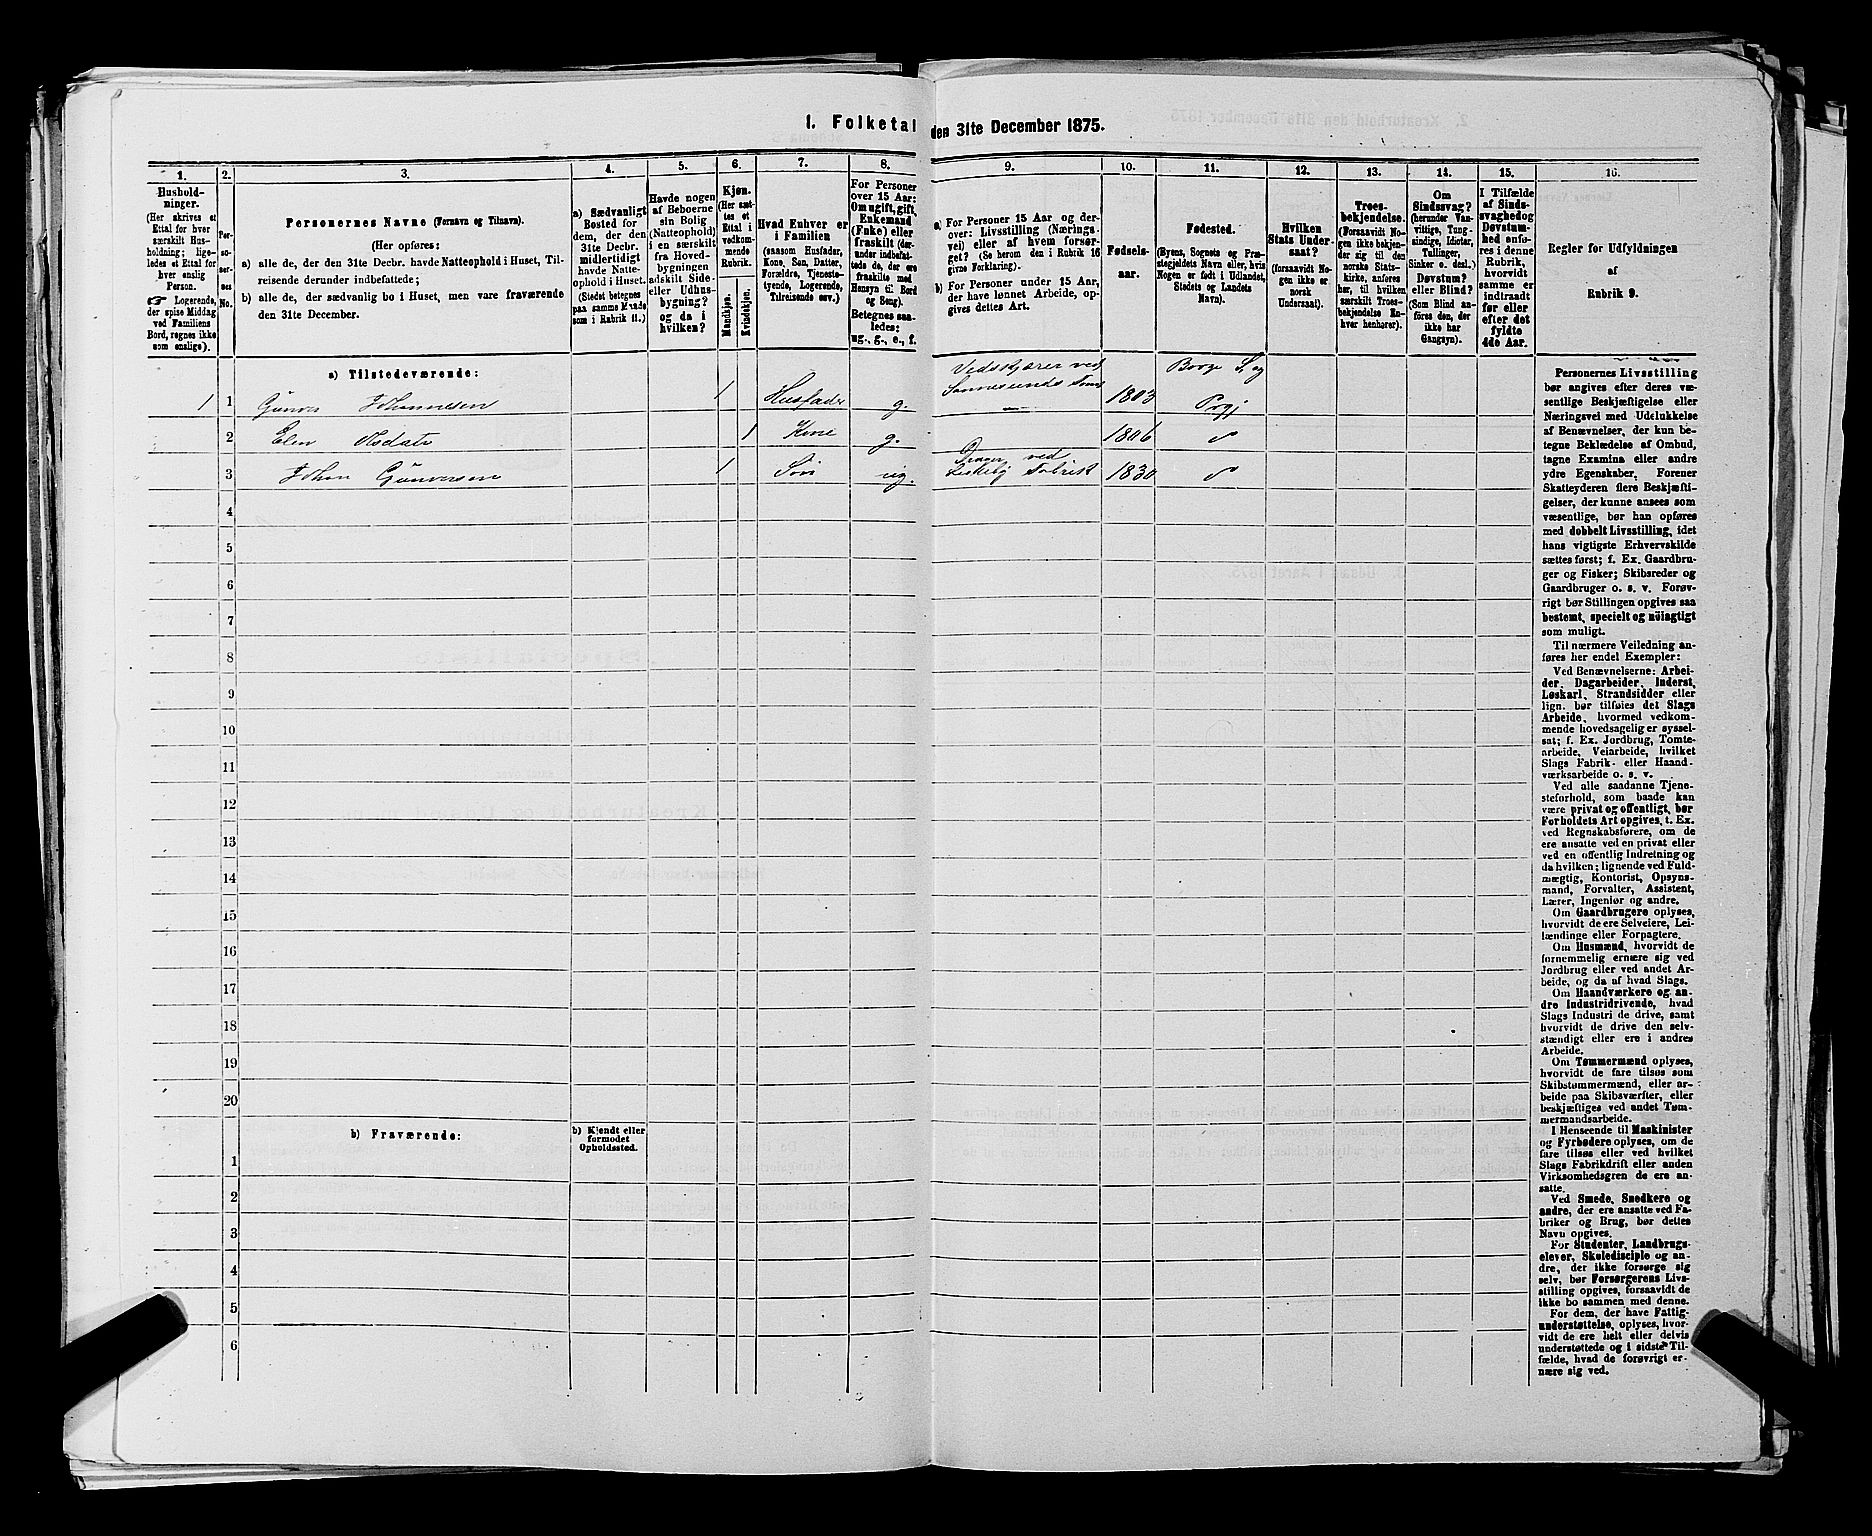 1. Folketal den 31te December 1875.
1.
Hushold-
ninger.
(Her skrives et
Ettal for hver
særskilt Hus-
holdning; lige-
ledes et Ettal for
hver enslig
Person.
☞ Logerende,
der spise Middag
ved Familiens
Bord, regnes ikke
som enslige).
2.
Per-
so-
ner-
nes
No.
3.
Personernes Navne (Fornavn og Tilnavn).
(Her opføres:
a) alle de, der den 31te Decbr. havde Natteophold i Huset, Til-
reisende derunder indbefattede;
b) alle de, der sædvanlig bo i Huset, men vare fraværende
den 31te December.
4.
a) Sædvanligt
Bosted for
dem, der den
31te Decbr.
midlertidigt
havde Natte-
ophold i Huset.
(Stedet betegnes
paa samme Maade
som i Rubrik 11.)
5.
Havde nogen
af Beboerne
sin Bolig
(Natteophold)
i en særskilt
fra Hoved-
bygningen
adskilt Side-
eller Udhus-
bygning?
og da i
hvilken?
6.
Kjøn.
(Her sæt-
tes et
Ettal i
vedkom-
mende
Rubrik.
Mandkjøn.
Kvindekjøn.
7.
Hvad Enhver er
i Familien
(saasom Husfader,
Kone, Søn, Datter,
Forældre, Tjeneste-
tyende, Logerende,
Tilreisende osv.)
8.
For Personer
over 15 Aar:
Om ugift, gift,
Enkemand
(Enke) eller
fraskilt (der-
under indbefat-
tede de, der ere
fraskilte med
Hensyn til Bord
og Seng).
Betegnes saa-
ledes:
ug., g., e., f.
9.
a) For Personer 15 Aar og der-
over: Livsstilling (Nærings-
vei) eller af hvem forsør-
get? (Se herom den i Rubrik 16
givne Forklaring).
b) For Personer under 15 Aar,
der have lønnet Arbeide, op-
gives dettes Art.
10.
Fødsels-
aar.
11.
Fødested.
(Byens, Sognets og Præ-
stegjeldets Navn eller, hvis
Nogen er født i Udlandet,
Stedets og Landets
Navn).
12.
Hvilken
Stats Under-
saat?
(forsaavidt No-
gen ikke er
norsk
Undersaat).
13.
Troes-
bekjendelse.
(Forsaavidt No-
gen ikke bekjen-
der sig til den
norske Stats-
kirke, anføres
her, til hvilken
særskilt Troes-
bekjendelse En-
hver henhører).
14.
Om
Sindssvag?
(herunder Van-
vittige, Tung-
sindige, Idioter,
Tullinger,
Sinker o. desl.)
Døvstum?
eller Blind?
(Som Blind an-
føres den, der
ikke har
Gangsyn).
15.
I Tilfælde
af Sinds-
svaghed og
Døvstum-
hed anfø-
res i denne
Rubrik,
hvorvidt
samme er
indtraadt
før eller
efter det
fyldte
4de Aar.
16.
Regler for Udfyldningen
af
Rubrik 9.
a) Tilstedeværende:
1 1 Gunder Johannesen 1 Husfader g. Vedskjærer ved 1803 Borge S. og
Prgj
2 Elen 1 Kone g. 1806 "
3 Johan Gundersen 1 Søn ug. Drager ved
Fabrik 1830 "
4
5
6
7
8
9
10
11
12
13
14
15
16
17
18
19
20
b) Fraværende:
b) Kjendt eller
formodet
Opholdssted.
1
2
3
4
5
6
Personernes Livsstilling
bør angives efter deres væ-
sentlige Beskjæftigelse eller
Næringsvei med Udelukkelse
af Benævnelser, der kun be-
tegne Beklædelse af Ombud,
tagne Examina eller andre
ydre Egenskaber. Forener
Skatteyderen flere Beskjæfti-
gelser, der kunne ansees som
væsentlige, bør han opføres
med dobbelt Livsstilling, idet
hans vigtigste Erhvervskilde
sættes først; f. Ex. Gaardbru-
ger og Fisker; Skibsreder og
Gaardbruger o. s. v. Forøv-
rigt bør Stillingen opgives saa
bestemt, specielt og nöiagtigt
som muligt.
Til nærmere Veiledning an-
føres her endel Exempler:
Ved Benævnelserne: Arbei-
der, Dagarbeider, Inderst,
Løskarl, Strandsidder eller
lign. bør tilføies det Slags
Arbeide, hvormed vedkom-
mende hovedsagelig er syssel-
sat; f. Ex. Jordbrug, Tomte-
arbeide, Veiarbeide, hvilket
Slags Fabrik- eller Haand-
værksarbeide o. s. v.
Ved alle saadanne Tjene-
steforhold, som baade kan
være privat og offentligt, bør
Forholdets Art opgives, t. Ex.
ved Regnskabsførere, om de
ere ansatte ved en privat eller
ved en offentlig Indretning og
da hvilken; lignende ved Fuld-
mægtig, Kontorist, Opsyns-
mand, Forvalter, Assistent,
Lærer, Ingeniør og andre.
Om Gaardbrugere oplyses,
hvorvidt de ere Selveiere, Lei-
lændinge eller Forpagtere.
Om Husmænd, hvorvidt de
fornemmelig ernære sig ved
Jordbrug eller ved andet Ar-
beide, og da af hvad Slags.
Om Haandværkere og an-
dre Industridrivende, hvad
Slags Industri de drive, samt
hvorvidt de drive den selv-
stændigt eller ere i andres
Arbeide.
Om Tømmermænd oplyses,
hvorvidt de fare tilsøs som
Skibstømmermænd, eller ar-
beide paa Skibsværfter, eller
beskjæftiges ved andet Tøm-
mermandsarbeide.
I Henseende til Maskinister
og Fyrbødere oplyses, om de
fare tilsøs eller ved hvilket
Slags Fabrikdrift eller anden
Virksomhedsgren de ere an-
satte.
Ved Smede, Snedkere og
andre, der ere ansatte ved Fa-
briker og Brug, bør dettes
Navn opgives.
For Studenter, Landbrugs-
elever, Skoledisciple og an-
dre, der ikke forsørge sig
selv, bør Forsørgerens Livs-
stilling opgives, forsaavidt de
ikke bo sammen med denne.
For dem, der have Fattig-
understøttelse, oplyses, hvor-
vidt de ere helt eller delvis
understøttede og i sidste Til-
fælde, hvad de forøvrigt er-
nære sig ved.